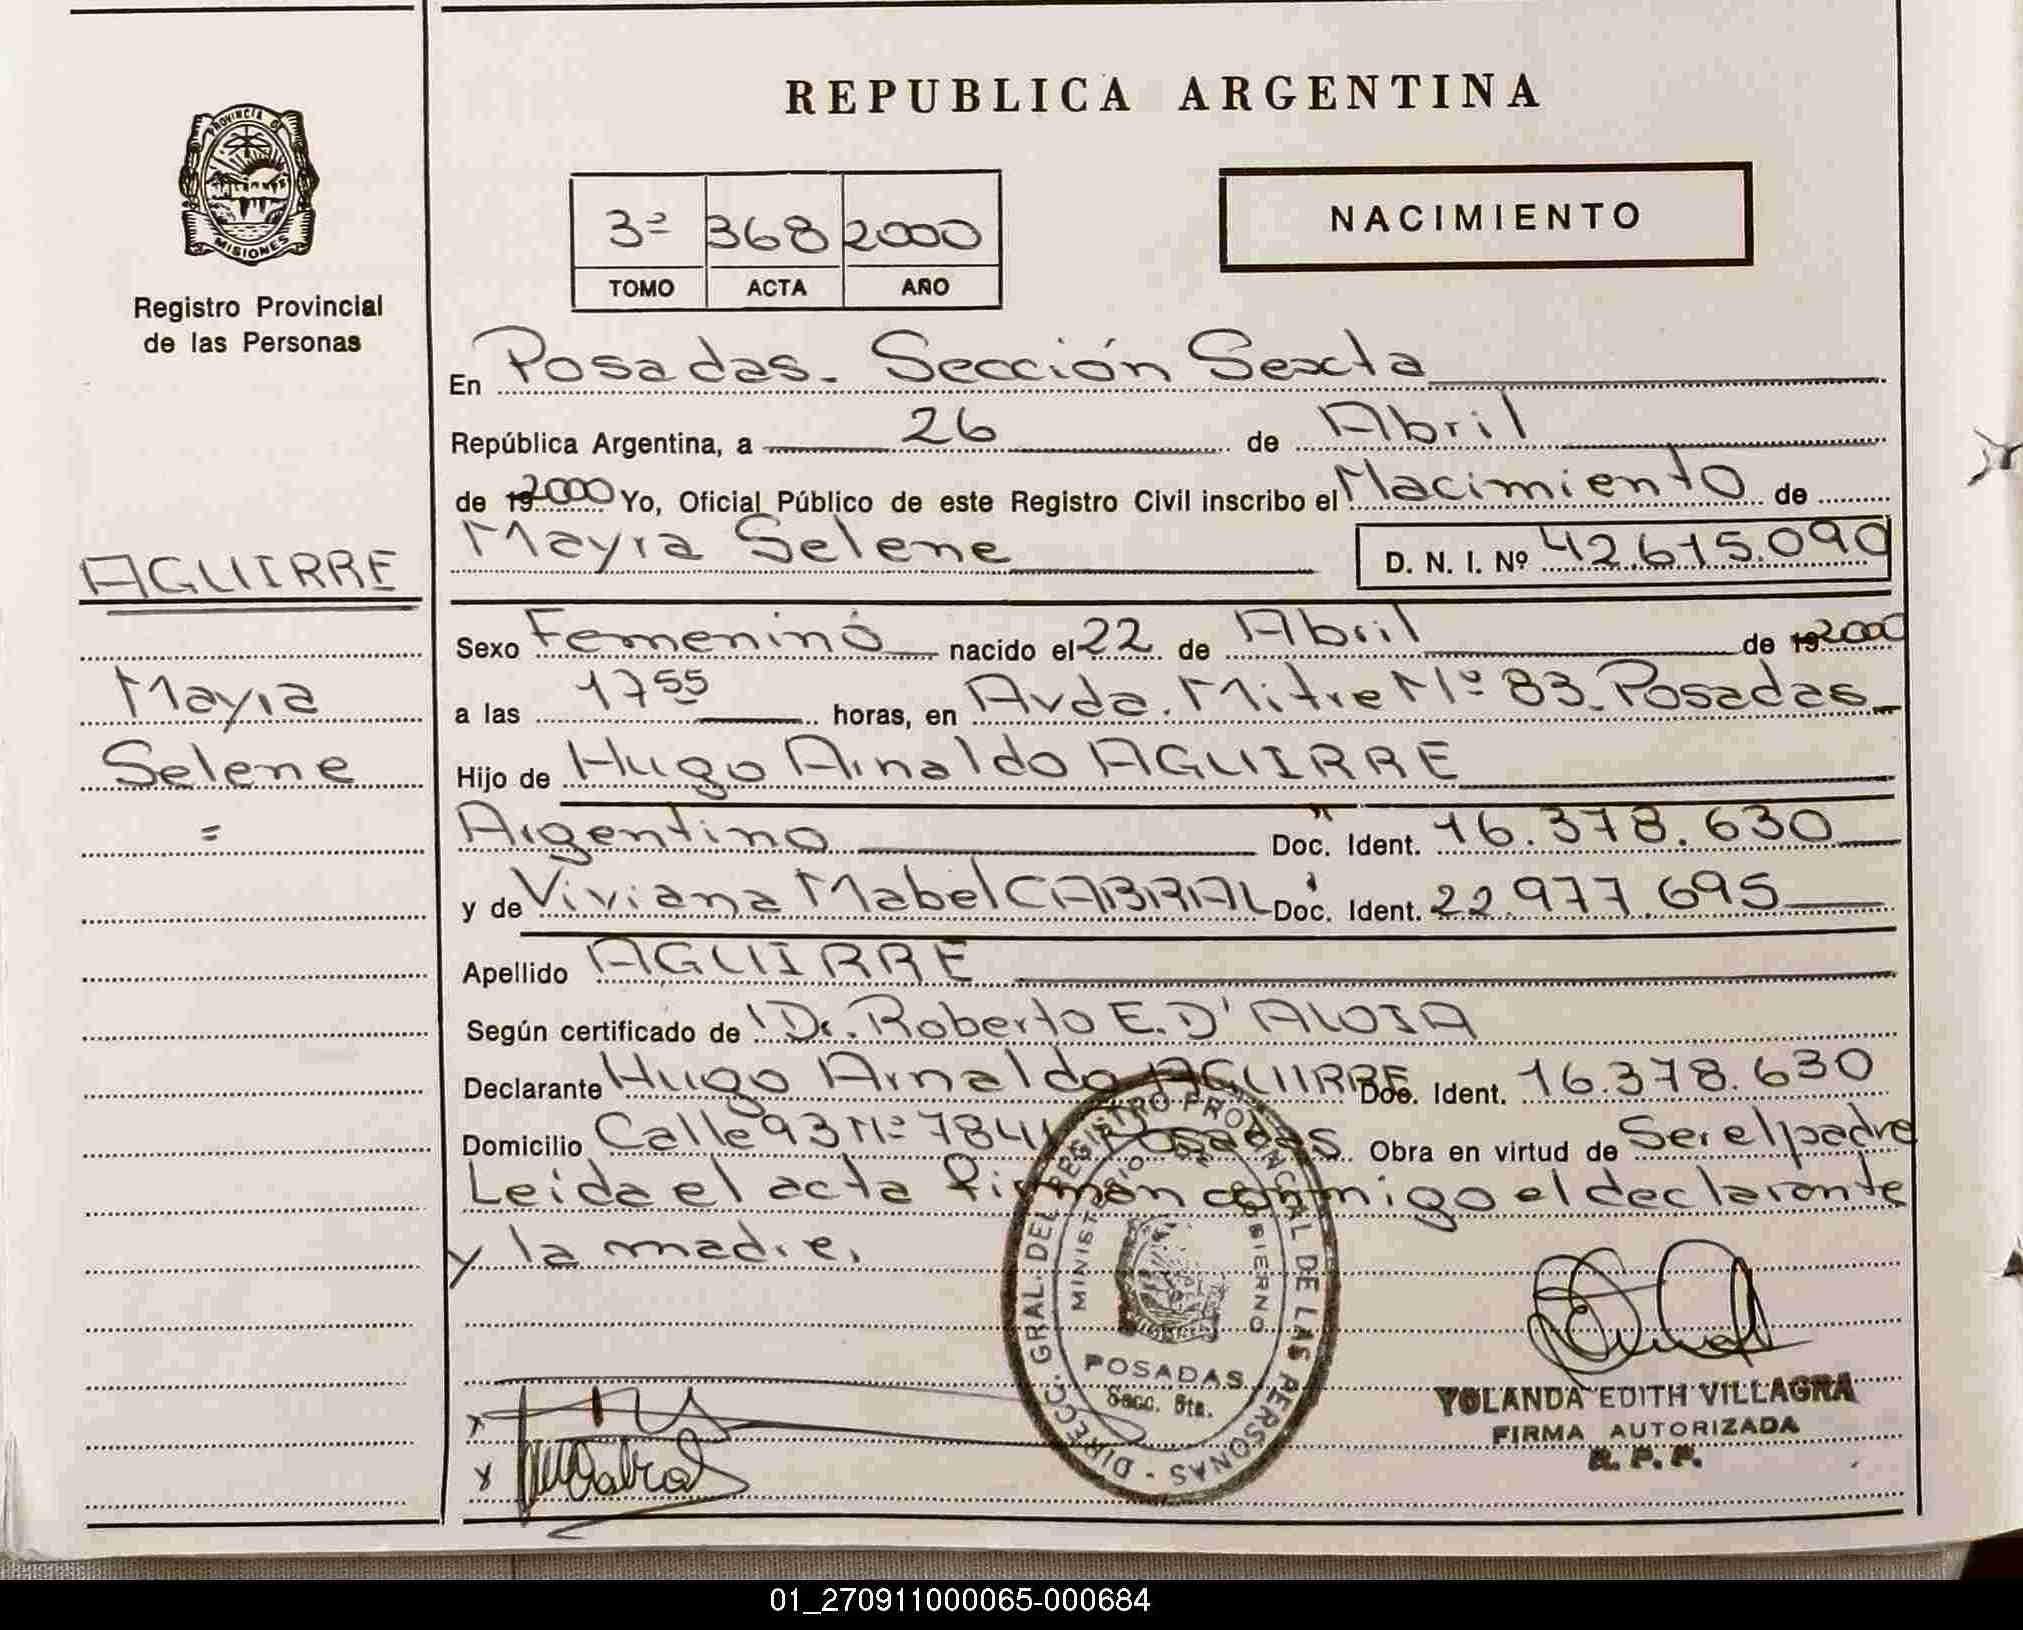 REPUBLICA ARGENTINA
PROVINCIA D
MISIONES
Registro Provincial
de las Personas
3ª 368 2000
TOMO ACTA AÑO
NACIMIENTO
En Posadas. Sección Sexta
República Argentina, a 26 de Abril
de 19 2000 Yo, Oficial Público de este Registro Civil inscribo el Nacimiento de
Mayra Selene D. N. I. Nº 42.615.090
AGUIRRE
Mayra
Selene
=
Sexo Femenino nacido el 22 de Abril de 19 2000
a las 17 55 horas, en Avda. Mitre Nº 83. Posadas
Hijo de Hugo Arnaldo AGUIRRE
Argentino Doc. Ident. 16.378.630
y de Viviana Mabel CABRAL Doc. Ident. 22.977.695
Apellido AGUIRRE
Según certificado de Dr. Roberto E. D'ALOIA
Declarante Hugo Arnaldo AGUIRRE Doc. Ident. 16.378.630
Domicilio Calle 93 Nº 7841 Posadas. Obra en virtud de Ser el padre
Leida el acta firman conmigo el declarante
y la madre.
DIRECC. GRAL. DEL REGISTRO PROVINCIAL DE LAS PERSONAS -
MINISTERIO DE GOBIERNO
POSADAS
Secc. 6ta.
YOLANDA EDITH VILLAGRA
FIRMA AUTORIZADA
R. P. P.
x
x MCabral
01_270911000065-000684